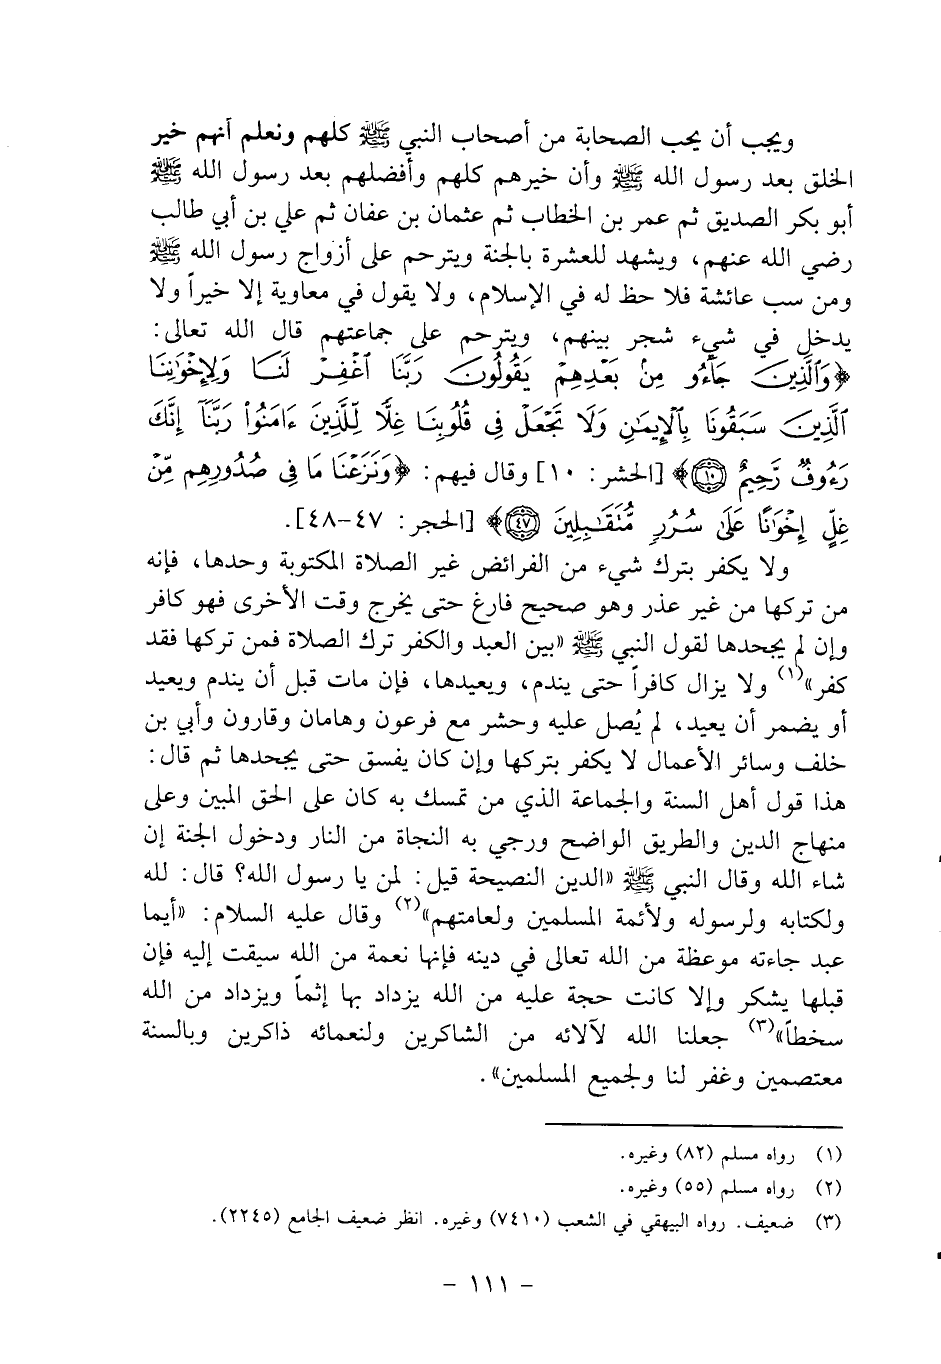 ويجب أن يحب الصحابة من أصحاب النبي ﷺ كلهم ونعلم أنهم خير
الخلق بعد رسول الله ﷺ وأن خيرهم كلهم وأفضلهم بعد رسول الله ﷺ
أبو بكر الصديق ثم عمر بن الخطاب ثم عثمان بن عفان ثم علي بن أبي طالب
رضي الله عنهم، ويشهد للعشرة بالجنة ويترحم على أزواج رسول الله ﷺ
ومن سب عائشة فلا حظ له في الإسلام، ولا يقول في معاوية إلا خيراً ولا
يدخل في شيء شجر بينهم، ويترحم على جماعتهم قال الله تعالى:
﴿وَٱلَّذِينَ جَآءُو مِنۢ بَعْدِهِمْ يَقُولُونَ رَبَّنَا ٱغْفِرْ لَنَا وَلِإِخْوَٰنِنَا
ٱلَّذِينَ سَبَقُونَا بِٱلْإِيمَٰنِ وَلَا تَجْعَلْ فِى قُلُوبِنَا غِلًّا لِّلَّذِينَ ءَامَنُوا۟ رَبَّنَآ إِنَّكَ
رَءُوفٌ رَّحِيمٌ ١٠﴾ [الحشر: ١٠] وقال فيهم: ﴿وَنَزَعْنَا مَا فِى صُدُورِهِم مِّنْ
غِلٍّ إِخْوَٰنًا عَلَىٰ سُرُرٍ مُّتَقَٰبِلِينَ ٤٧﴾ [الحجر: ٤٧-٤٨].
ولا يكفر بترك شيء من الفرائض غير الصلاة المكتوبة وحدها، فإنه
من تركها من غير عذر وهو صحيح فارغ حتى يخرج وقت الأخرى فهو كافر
وإن لم يجحدها لقول النبي ﷺ «بين العبد والكفر ترك الصلاة فمن تركها فقد
كفر»(١) ولا يزال كافراً حتى يندم، ويعيدها، فإن مات قبل أن يندم ويعيد
أو يضمر أن يعيد، لم يُصل عليه وحشر مع فرعون وهامان وقارون وأبي بن
خلف وسائر الأعمال لا يكفر بتركها وإن كان يفسق حتى يجحدها ثم قال:
هذا قول أهل السنة والجماعة الذي من تمسك به كان على الحق المبين وعلى
منهاج الدين والطريق الواضح ورجي به النجاة من النار ودخول الجنة إن
شاء الله وقال النبي ﷺ «الدين النصيحة قيل: لمن يا رسول الله؟ قال: لله
ولكتابه ولرسوله ولأئمة المسلمين ولعامتهم»(٢) وقال عليه السلام: «أيما
عبد جاءته موعظة من الله تعالى في دينه فإنها نعمة من الله سيقت إليه فإن
قبلها يشكر وإلا كانت حجة عليه من الله يزداد بها إثماً ويزداد من الله
سخطاً»(٣) جعلنا الله لآلائه من الشاكرين ولنعمائه ذاكرين وبالسنة
معتصمين وغفر لنا ولجميع المسلمين».
(١) رواه مسلم (٨٢) وغيره.
(٢) رواه مسلم (٥٥) وغيره.
(٣) ضعيف. رواه البيهقي في الشعب (٧٤١٠) وغيره. انظر ضعيف الجامع (٢٢٤٥).
- ١١١ -